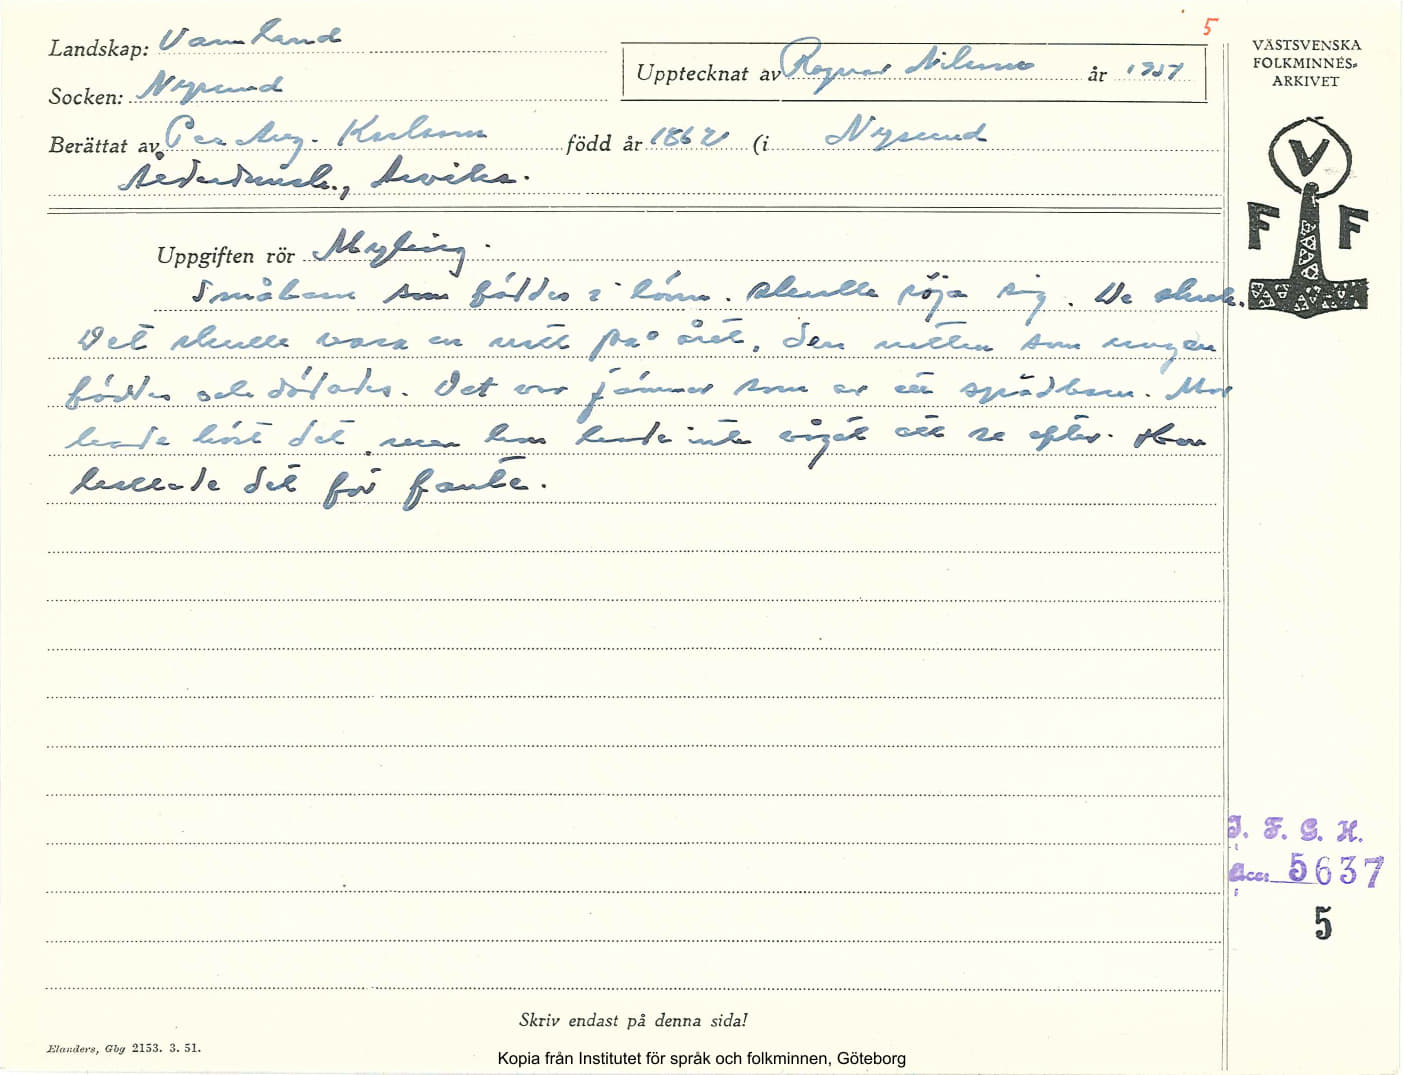 5
Landskap: Värmland
Upptecknat av Ragnar Nilsson år 1957
Socken: Nysund
Berättat av Per Aug. Karlsson född år 1862 (i Nysund
Arvika.
VÄSTSVENSKA
FOLKMINNES-
ARKIVET
V
F F
Uppgiften rör Myling.
Småbarn som föddes i lönn. skulle röja sig. De skrek.
Det skulle vara en natt på året, den natten som ungen
föddes och dödades. Det var jämmer som av ett spädbarn. Mor
hade hört det, men hon hade inte vågat att se efter. Hon
kallade det för fante.
I. F. G. H.
Acc: 5637
5
Skriv endast på denna sida!
Elanders, Gbg 2153. 3. 51.
Kopia från Institutet för språk och folkminnen, Göteborg